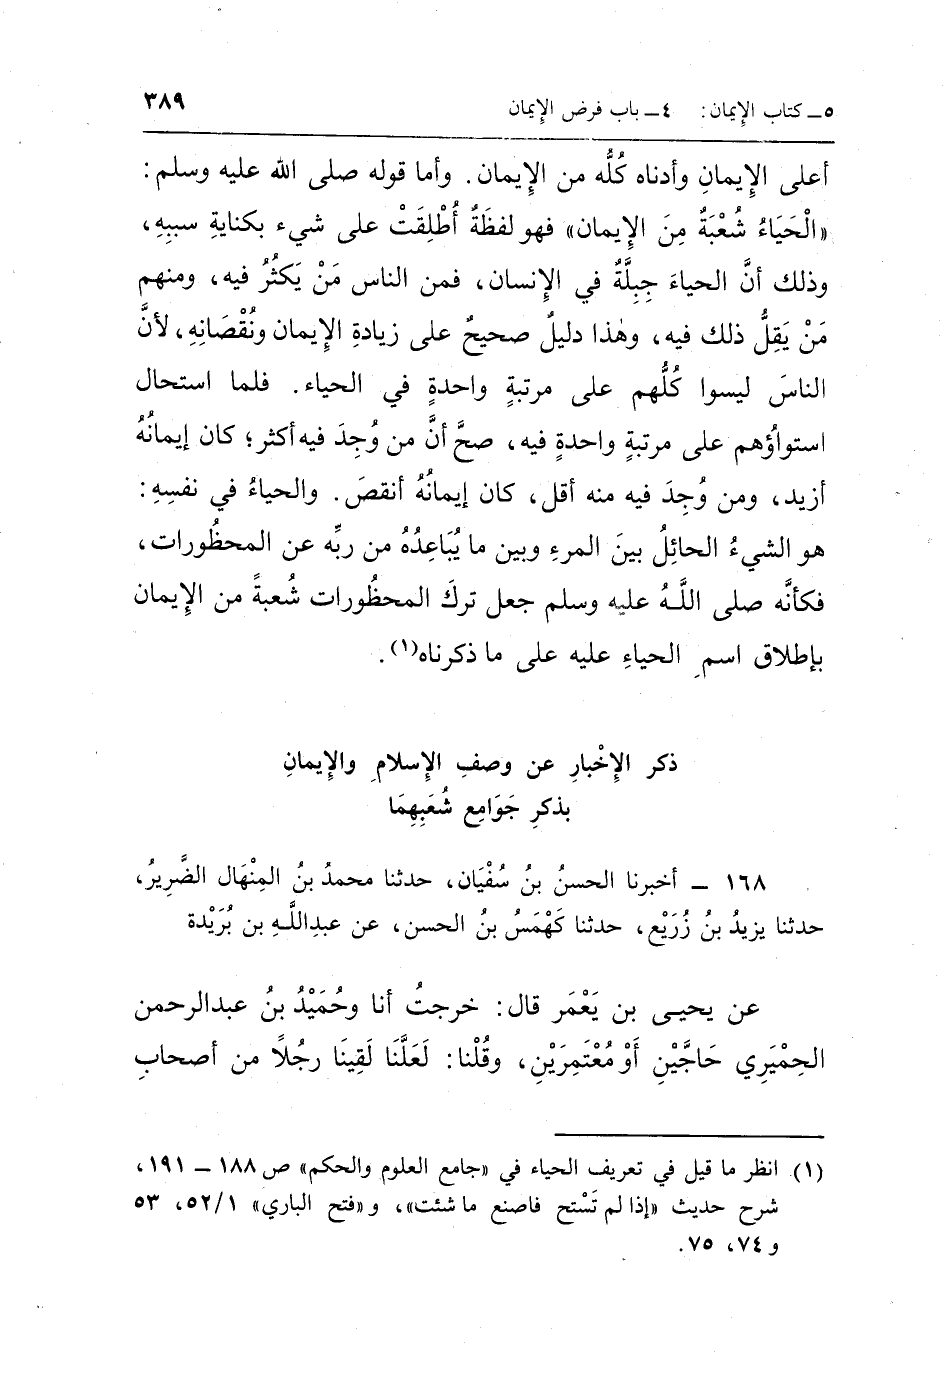 ٥ ــ كتاب الإيمان: ٤ ــ باب فرض الإيمان ٣٨٩
أعلى الإيمانِ وأدناه كُلُّه من الإيمان. وأما قوله صلى الله عليه وسلم:
«الْحَيَاءُ شُعْبَةٌ مِنَ الإيمان» فهو لفظَةٌ أُطْلِقَتْ على شيء بكنايةِ سببِهِ،
وذلك أنَّ الحياءَ جِبِلَّةٌ في الإنسان، فمن الناس مَنْ يَكثُرُ فيه، ومنهم
مَنْ يَقِلُّ ذلك فيه، وهٰذا دليلٌ صحيحٌ على زيادةِ الإيمان ونُقْصَانِهِ، لأنَّ
الناسَ ليسوا كُلُّهم على مرتبةٍ واحدةٍ في الحياء. فلما استحال
استواؤهم على مرتبةٍ واحدةٍ فيه، صحَّ أنَّ من وُجِدَ فيه أكثر؛ كان إيمانُهُ
أزيد، ومن وُجِدَ فيه منه أقل، كان إيمانُهُ أنقصَ. والحياءُ في نفسِهِ:
هو الشيءُ الحائِلُ بينَ المرءِ وبين ما يُبَاعِدُهُ من ربِّه عن المحظُورات،
فكأنَّه صلى اللَّهُ عليه وسلم جعل تركَ المحظُورات شُعبةً من الإيمان
بإطلاق اسمِ الحياءِ عليه على ما ذكرناه(١).
ذكر الإِخْبارِ عن وصفِ الإسلامِ والإيمانِ
بذكرِ جَوَامِعِ شُعَبِهِمَا
١٦٨ ــ أخبرنا الحسنُ بنُ سُفْيَان، حدثنا محمدُ بنُ المِنْهَال الضَّرِيرُ،
حدثنا يزيدُ بنُ زُرَيْع، حدثنا كَهْمَسُ بنُ الحسن، عن عبدِاللَّهِ بن بُرَيْدة
عن يحيى بن يَعْمَر قال: خرجتُ أنا وحُمَيْدُ بنُ عبدالرحمن
الحِمْيَرِي حَاجَّيْنِ أَوْ مُعْتَمِرَيْنِ، وقُلْنا: لَعَلَّنَا لَقِينَا رجُلاً من أصحابِ
(١) انظر ما قيل في تعريف الحياء في «جامع العلوم والحكم» ص ١٨٨ ــ ١٩١،
شرح حديث «إذا لم تَسْتح فاصنع ما شئت»، و«فتح الباري» ٥٢/١، ٥٣
و ٧٤، ٧٥.